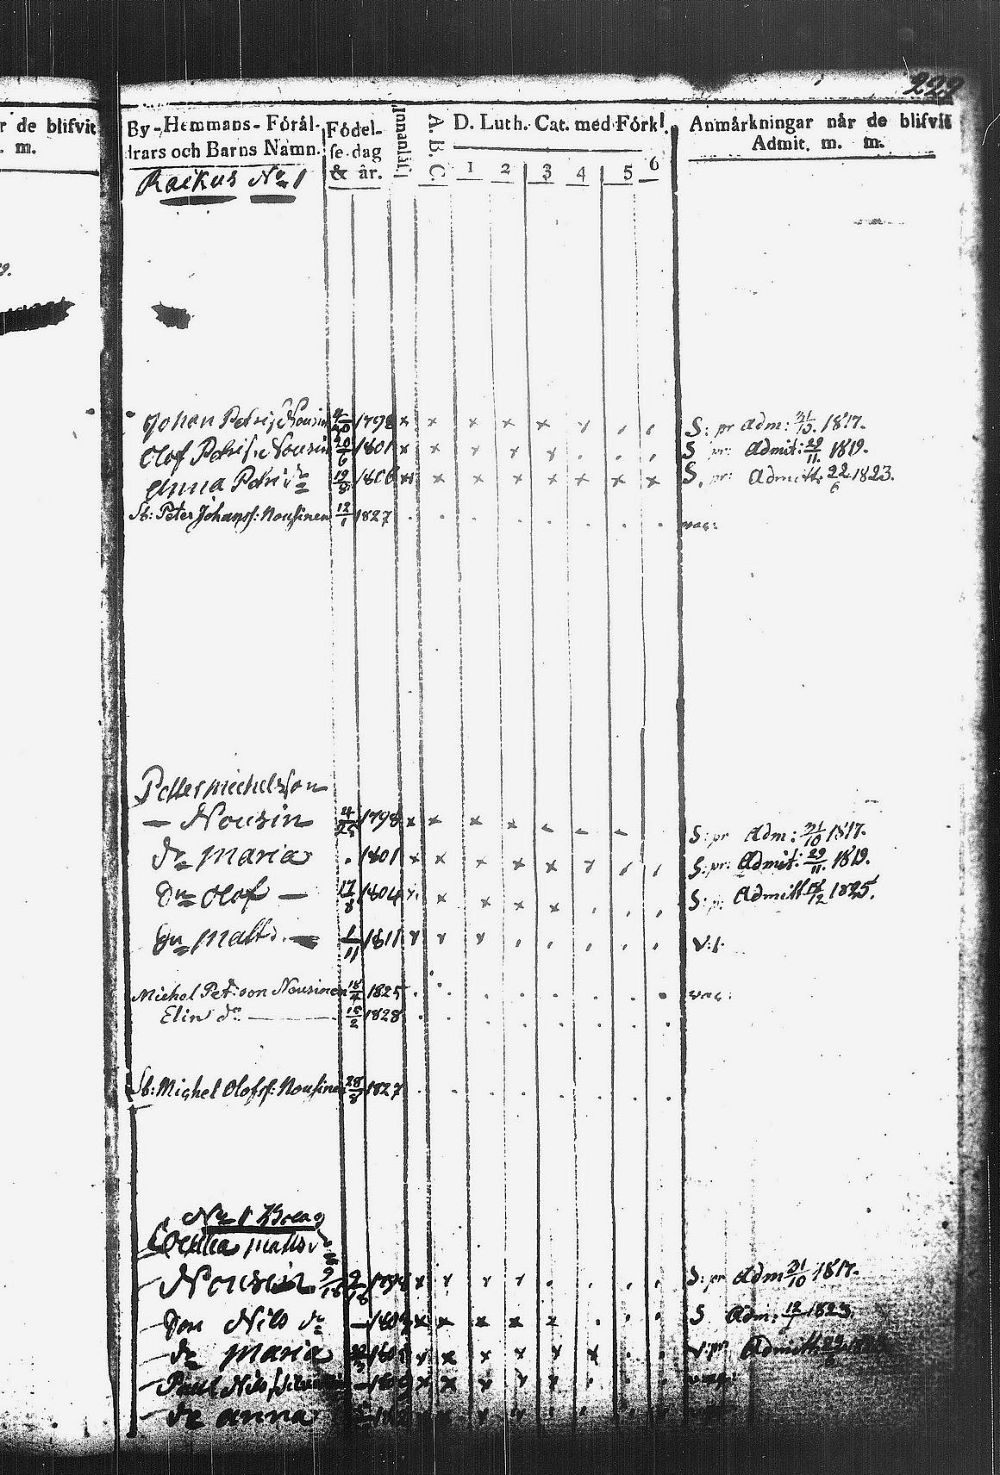 229
r de blifvit
. m.
By-Hemmans-Föräl-
drars och Barns Namn.
Födel-
se-dag
& år.
Innanläsn.
A. B. C.
D. Luth. Cat. med Förkl.
1 2 3 4 5 6
Anmärkningar när de blifvit
Admit. m. m.
Raikus No 1
Johan Petrij Nousin 4/20 1798 S: pr adm: 31/10. 1817.
Olof Petri Nousin 20/6 1801 S pr: Admit: 29/11 1819.
Anna Petri 1806 S. pr: Admitt: 22/6 1823.
Sb: Peter Johanss: Nousinen 12/1 1827 vac:
Petter Michelsson
— Nousin 4/25 1798 S: pr Adm: 31/10 1817.
dr Maria . 1801 S: pr: Admit: 29/11. 1819.
Dn Olof — 17/8 1804 S: p: Admitt 1825.
Dn Matts. — 1/11 1811
Michel Pet:son Nousinen 18/4 1825 vac:
Elin dr — 18/2 1828
Sb: Michel Olofss: Nousinen 28/8 1827
No 1
Cecilia Matts dr
Nousin S: pr adm 31/10 1817.
Son Nils S Adm: 1823.
dr Maria Admitt
Paul Nils
dr Anna